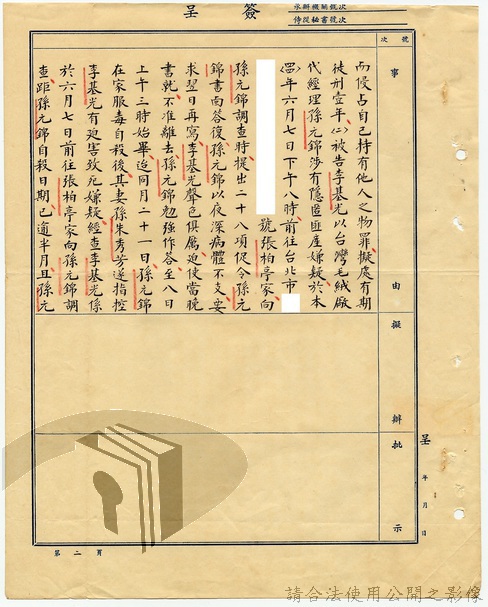 簽呈
承辦機關號次
侍從秘書號次
號次
事由
擬辦
批示
而侵占自己持有他人之物罪擬處有期
徒刑壹年(二)被告李基光以台灣毛絨廠
代經理孫元錦涉有隱匿匪產嫌疑於本
(四)年六月七日下午八時前往台北市
號張柏亭家向
孫元錦調查時提出二十八項促令孫元
錦書面答復孫元錦以夜深病體不支要
求翌日再寫李基光聲色俱厲迫使當晚
書就不准離去孫元錦勉強作答至八日
上午三時始畢迨同月二十一日孫元錦
在家服毒自殺後其妻孫朱秀芳遂指控
李基光有迫害致死嫌疑經查李基光係
於六月七日前往張柏亭家向孫元錦調
查距孫元錦自殺日期已逾半月且孫元
呈 年 月 日
第二頁
請合法使用公開之影像